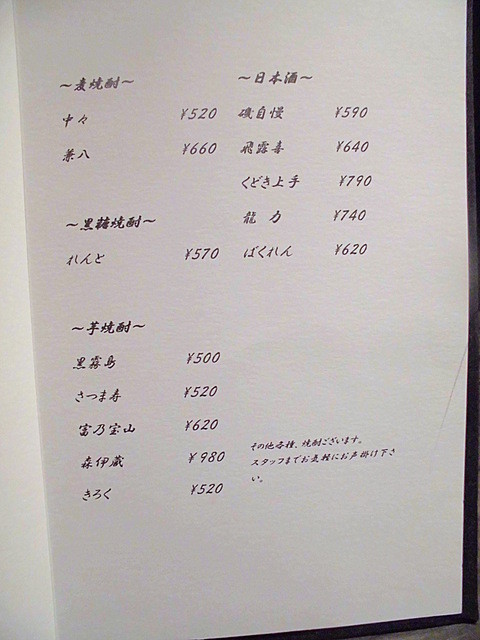 ～麦焼酎～
中々 ¥520
兼八 ¥660
～黒糖焼酎～
れんと ¥570
～芋焼酎～
黒霧島 ¥500
さつま寿 ¥520
富乃宝山 ¥620
森伊蔵 ¥980
きろく ¥520
～日本酒～
磯自慢 ¥590
飛露喜 ¥640
くどき上手 ¥790
龍力 ¥740
ばくれん ¥620
その他各種、焼酎ございます。
スタッフまでお気軽にお声掛け下さ
い。